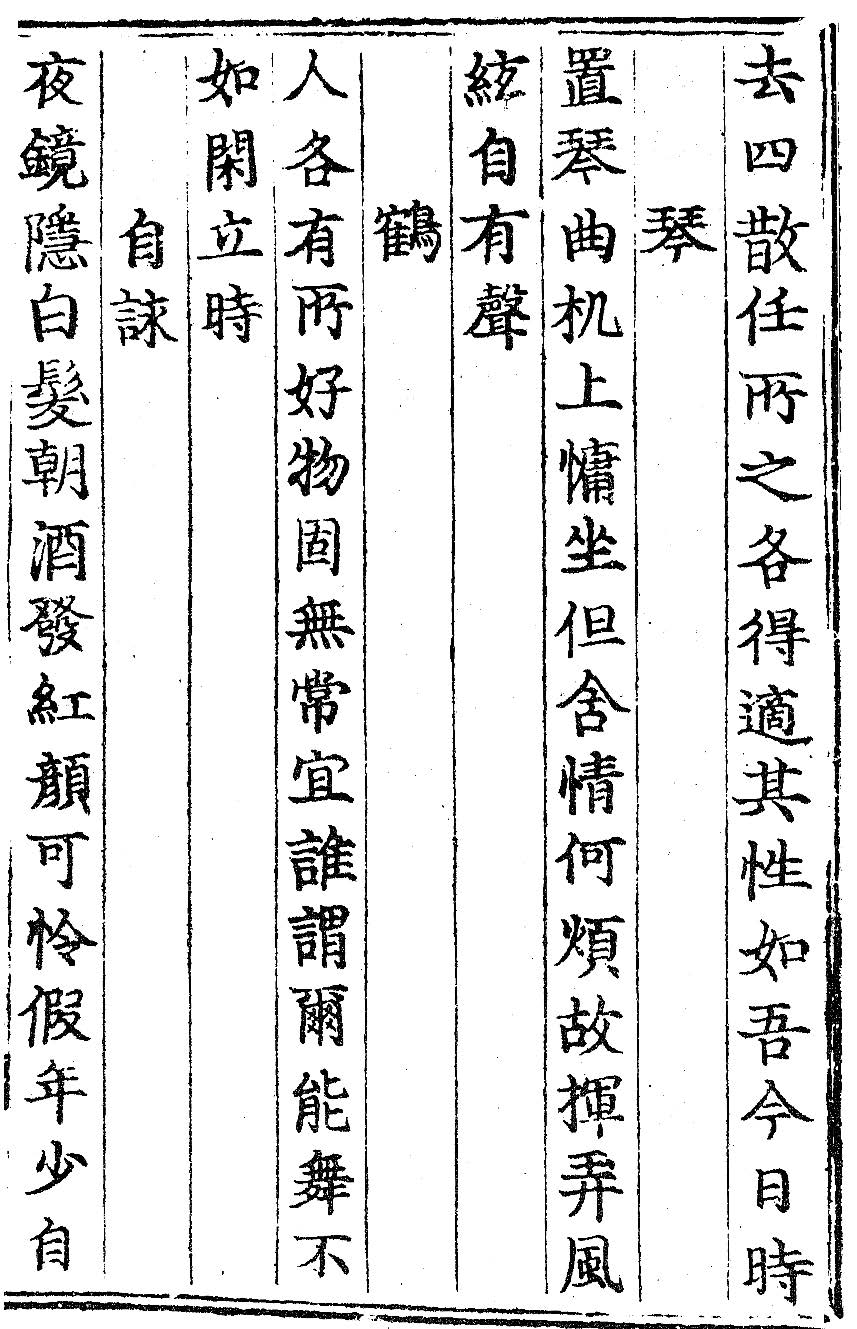 去四散任所之各得適其性如吾今日時
琴
置琴曲机上慵坐但含情何煩故揮弄風
絃自有聲
鶴
人各有所好物固無常宜誰謂爾能舞不
如閑立時
自詠
夜鏡隱白髮朝酒發紅顏可怜假年少自